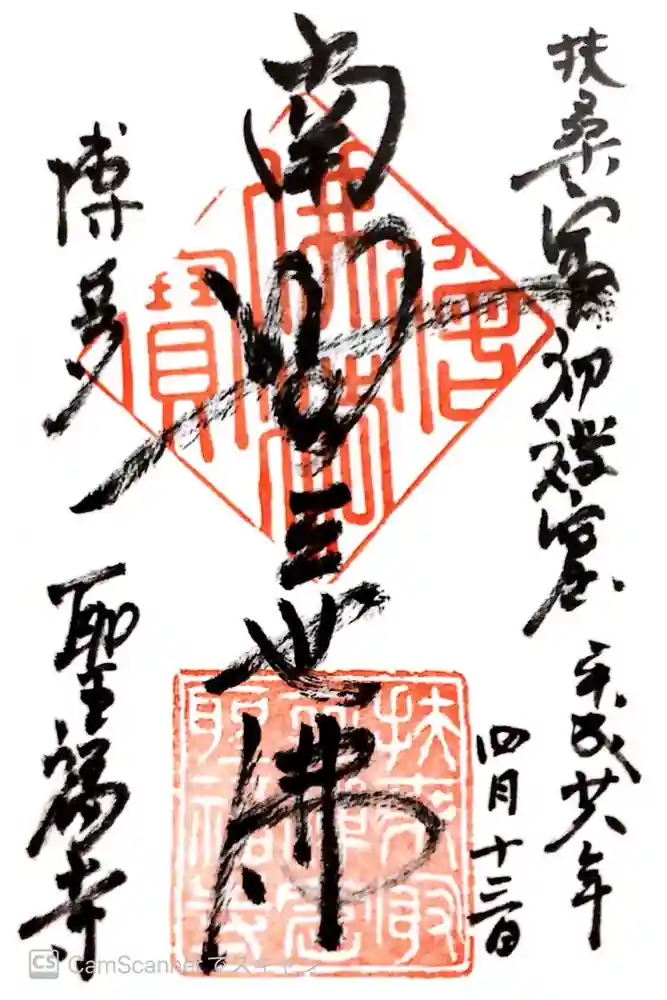 扶桑最初禅窟
平成廿六年
四月十三日
南無三世佛
佛法僧寶
扶桑最初禪窟聖福寺
博多
聖福寺
CS CamScannerでスキャン